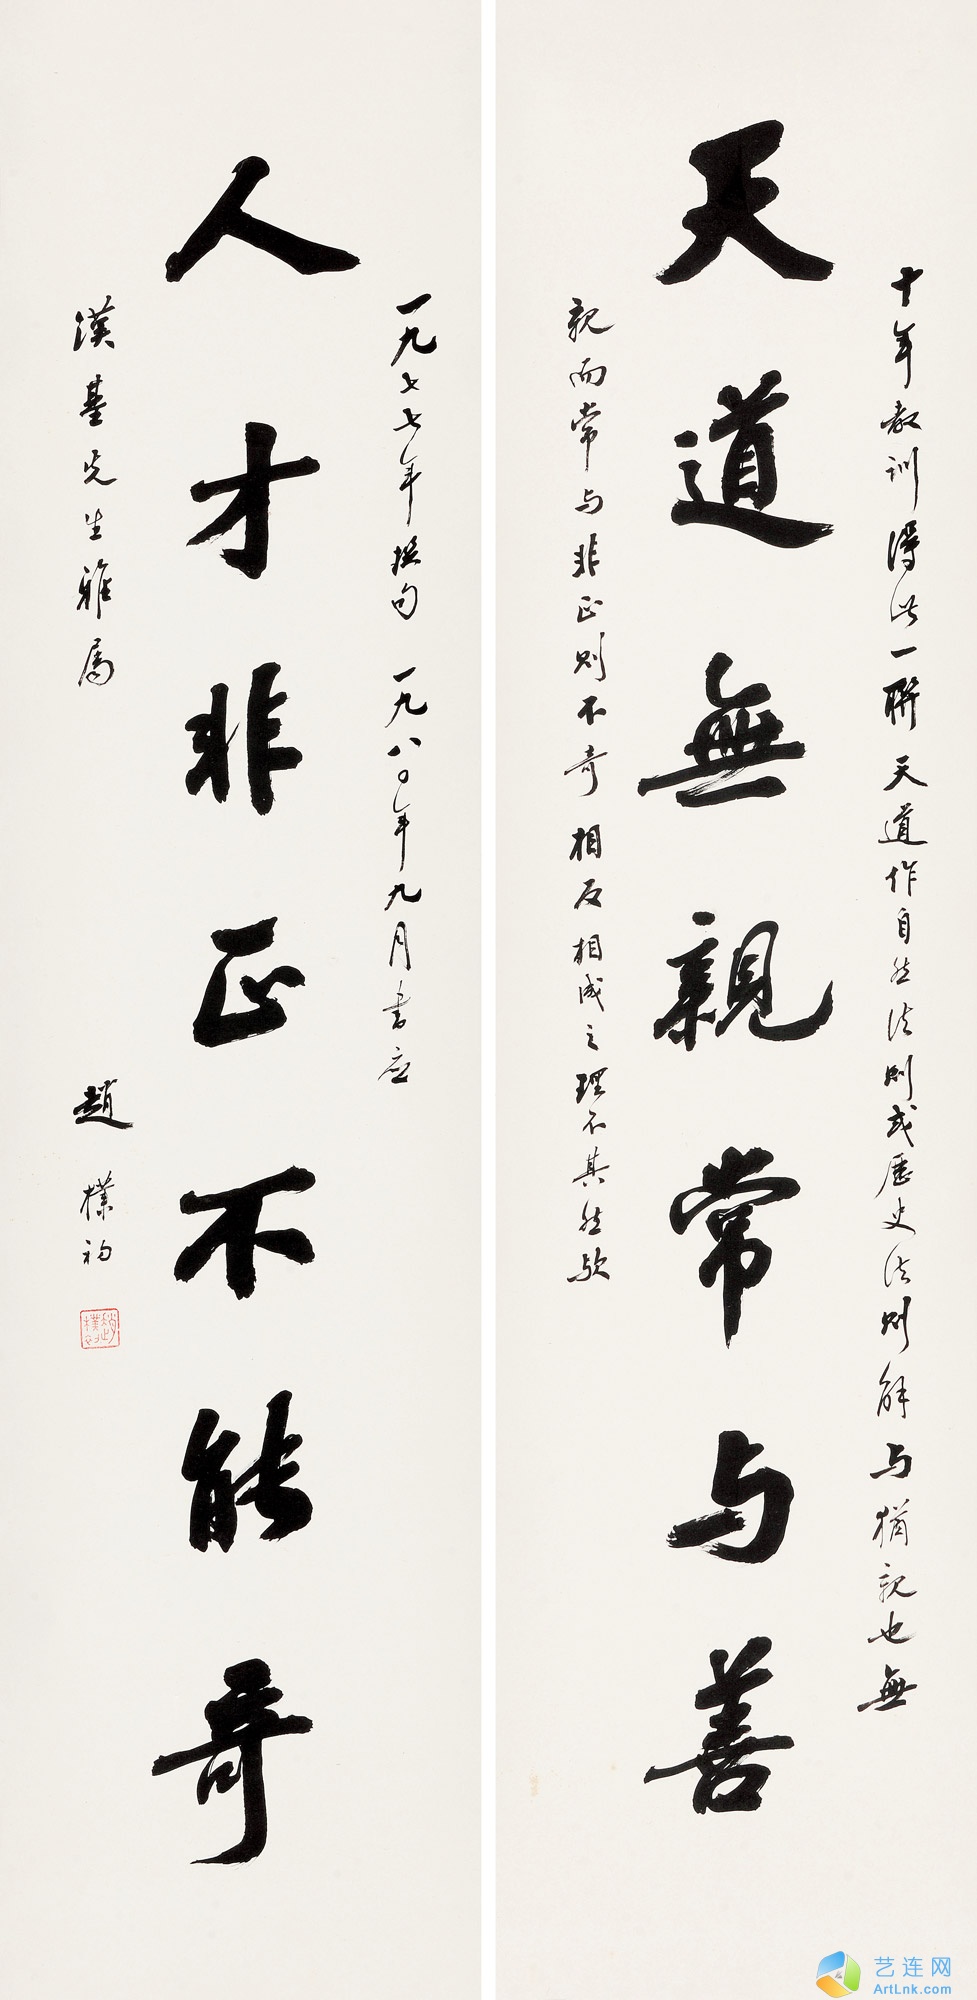 天道無親常与善
十年教训得此一联天道作自然法则或历史法则解与猶親也無
親而常与非正则不奇相反相成之理不其然欤
人才非正不能奇
一九七七年撰句 一九八〇年九月書应
漢基先生雅属
趙樸初
趙樸初
艺连网
ArtLnk.com